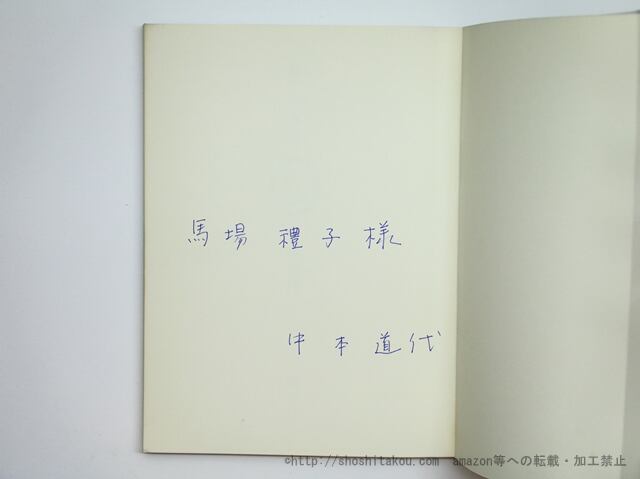 馬場 禮子様
中本道代
©http://shoshitakou.com amazon等への転載・加工禁止